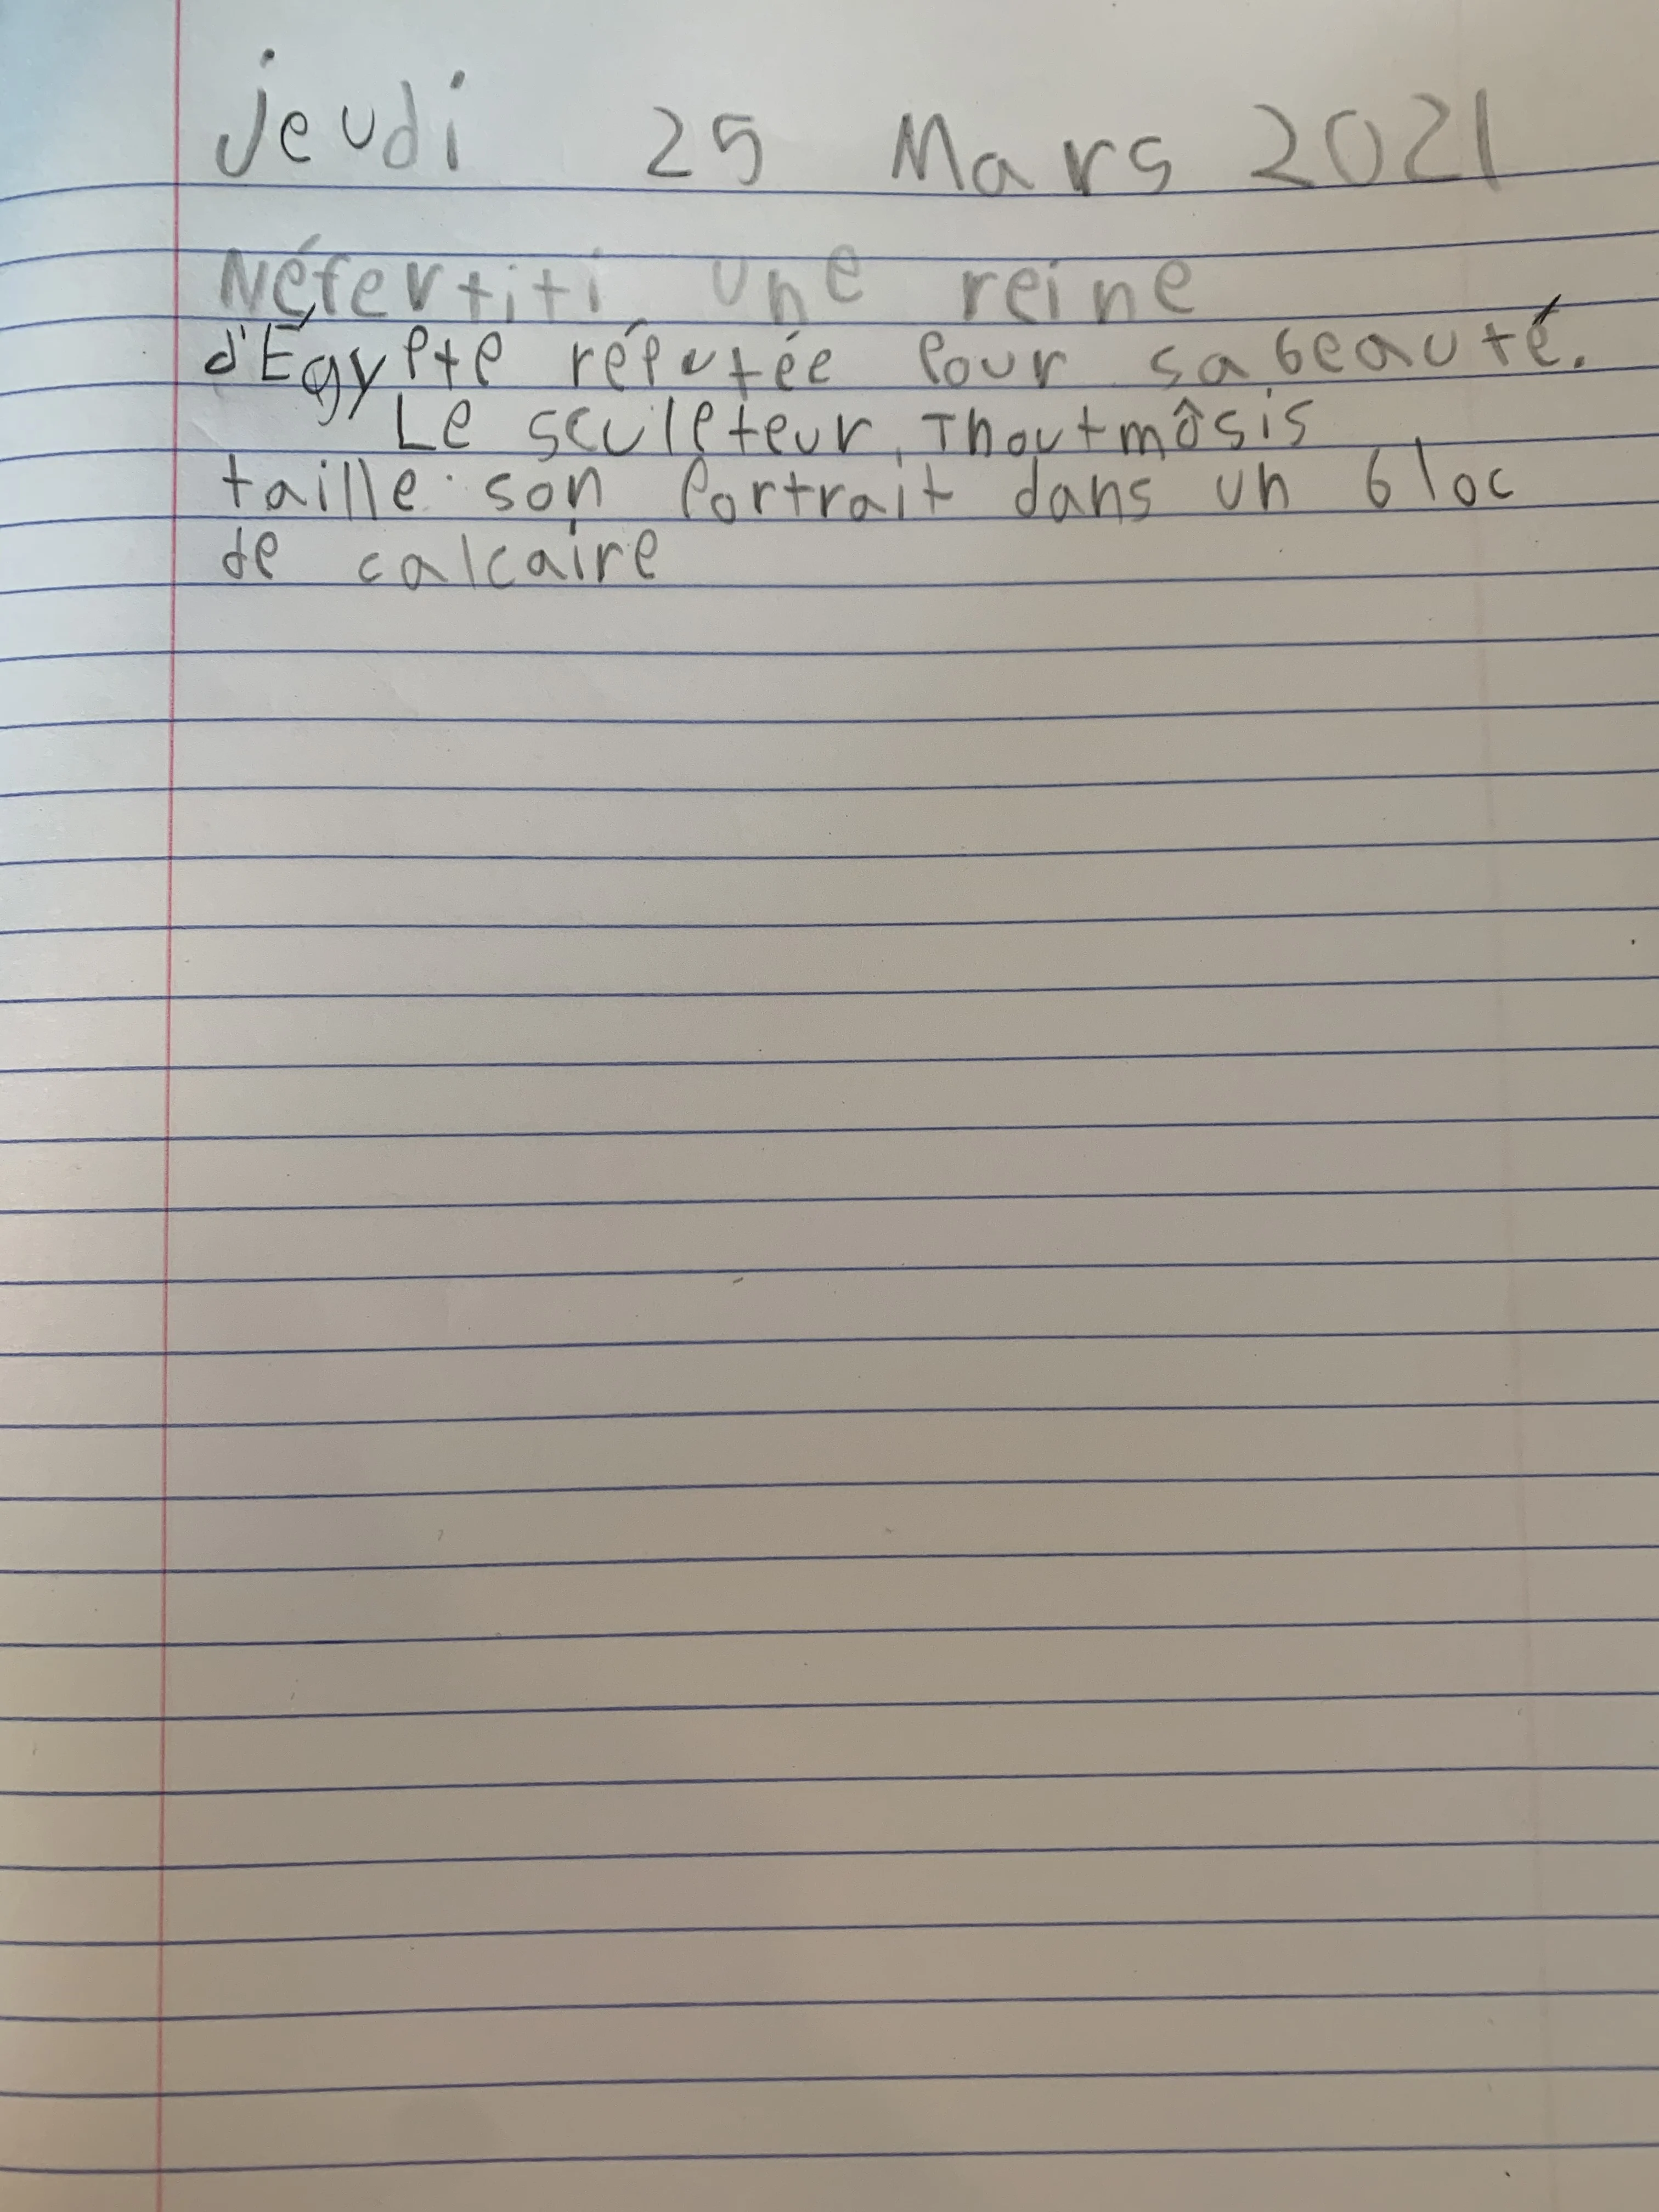 jeudi 25 Mars 2021
Néfertiti une reine
d'Égypte réputée pour sa beauté.
Le sculpteur, Thoutmôsis
taille son portrait dans un bloc
de calcaire